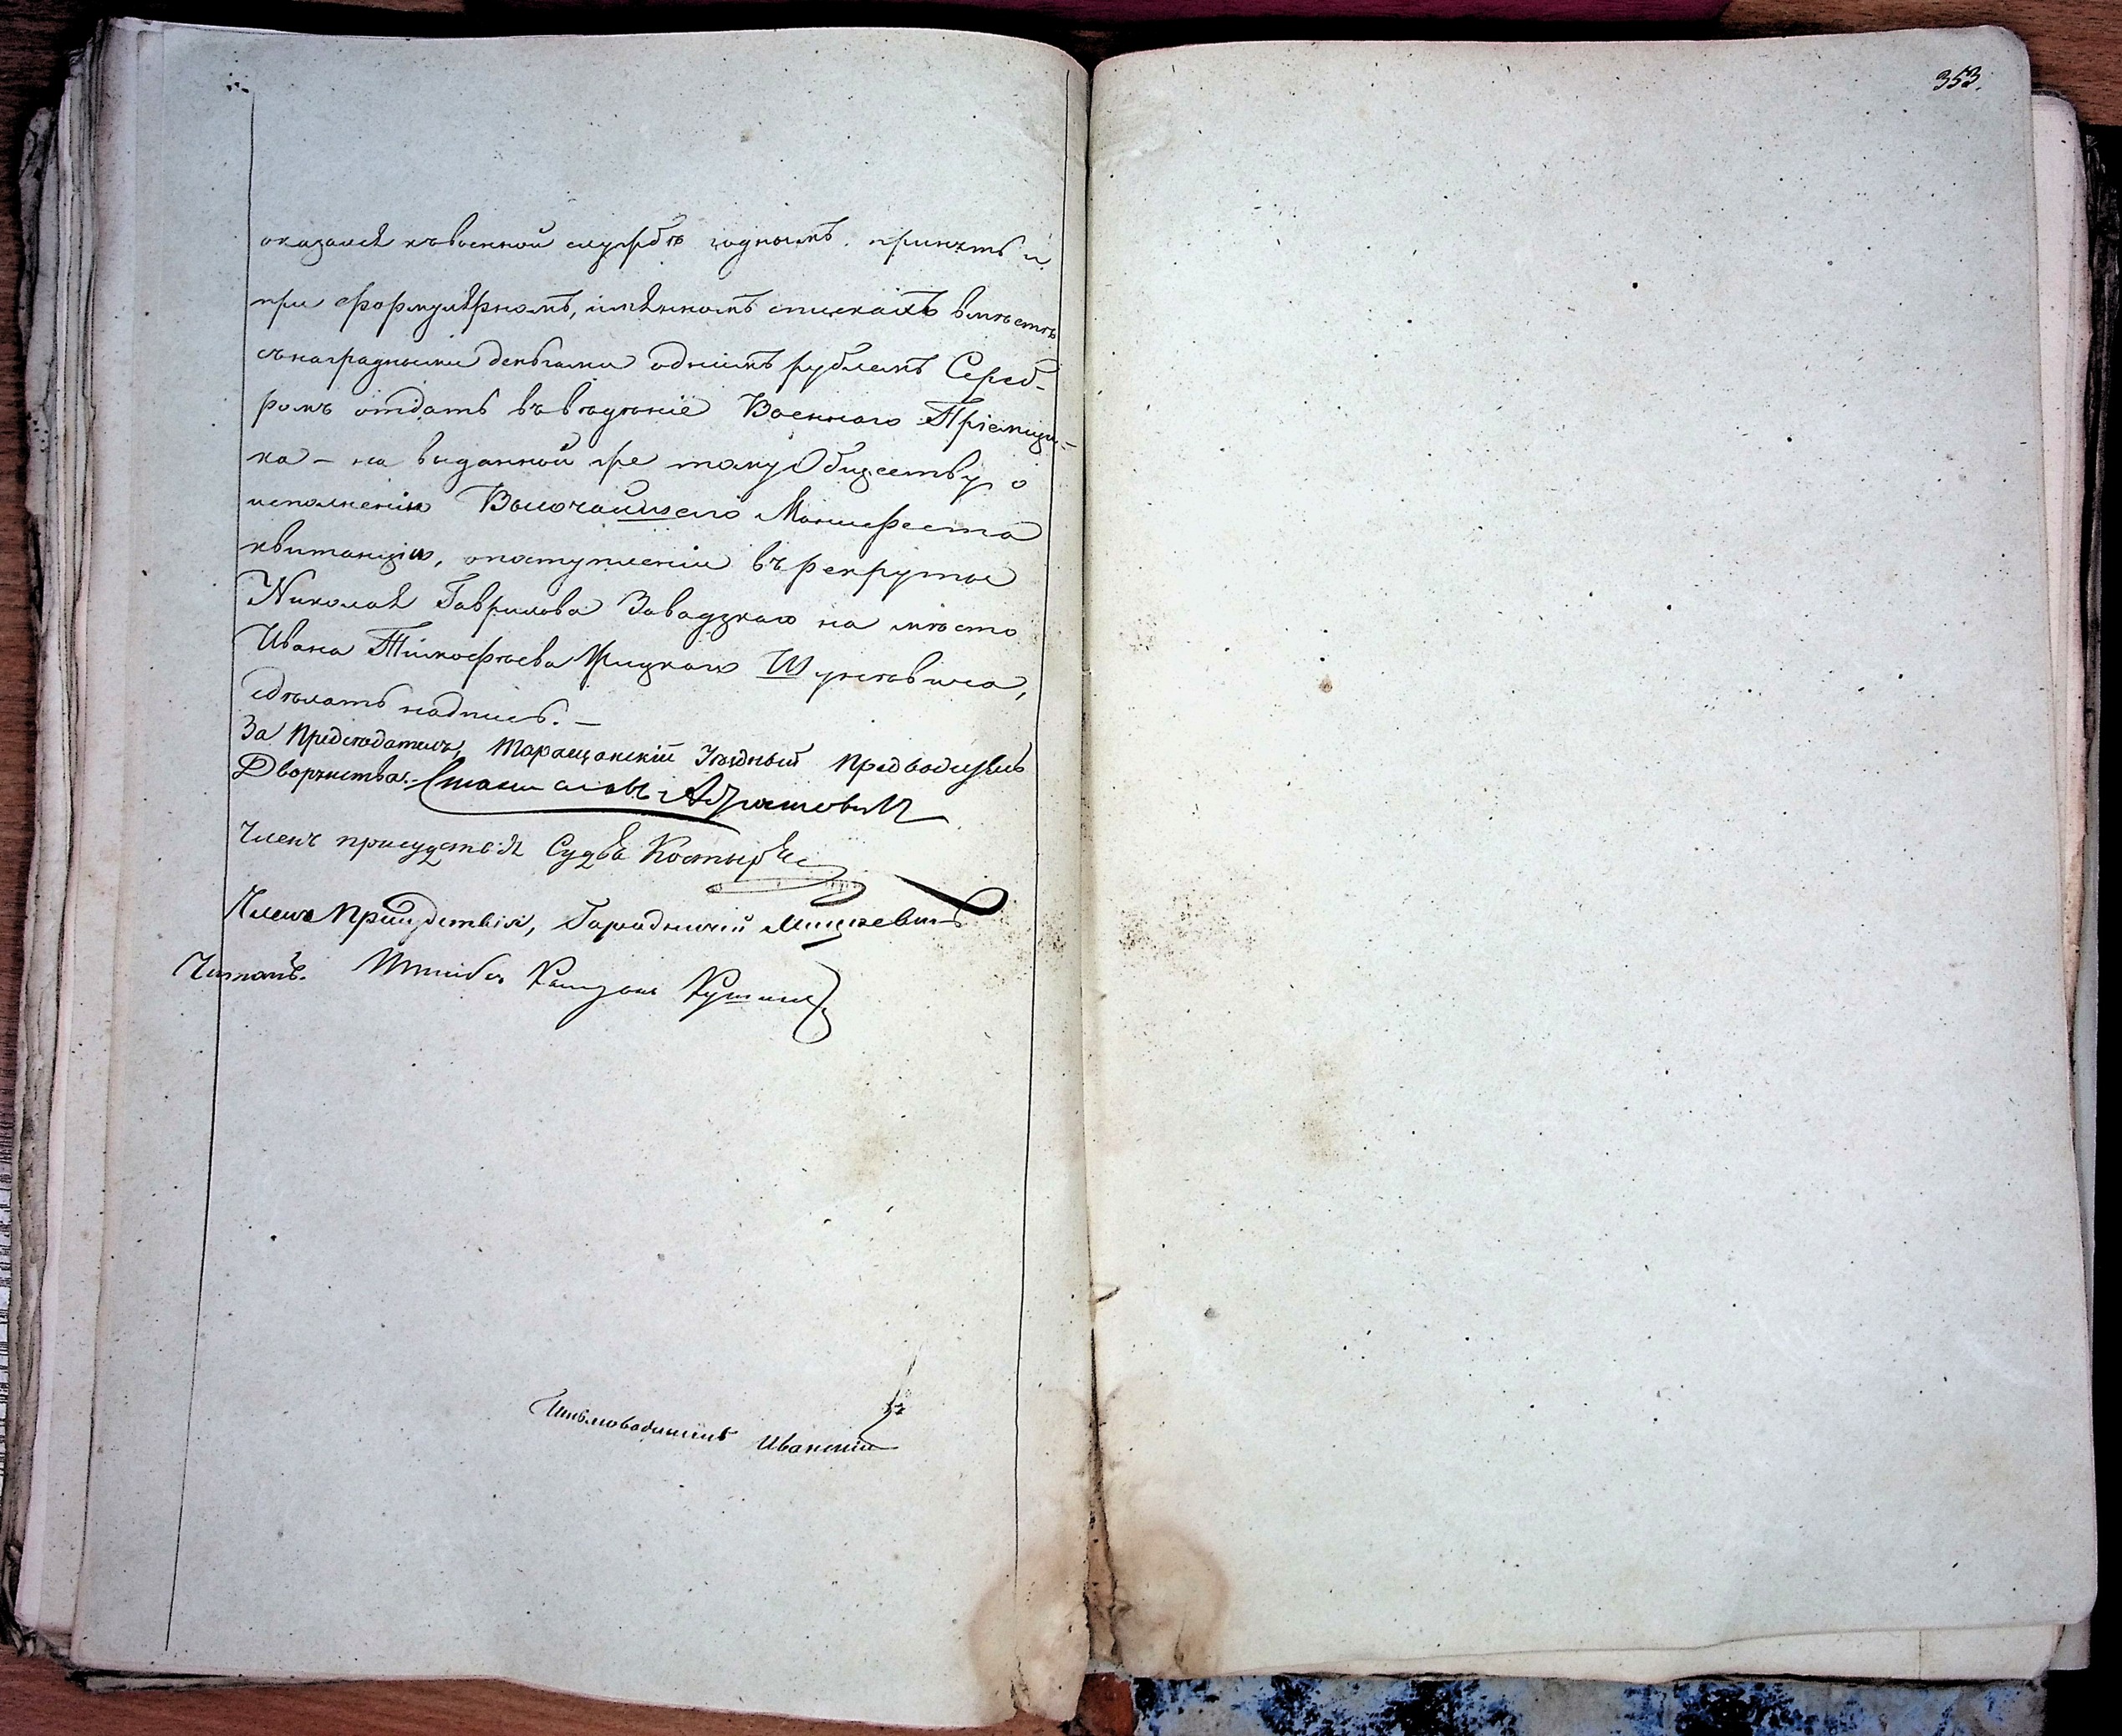 353.
оказался къ военной службѣ годнымъ. принять и
при формулярномъ, имянномъ спискахъ вмѣстѣ
съ наградными деньгами однимъ рублемъ Сереб-
ромъ отдать въ вѣденіе Военнаго Пріемщи-
ка – на выданной же тому Обществу о
исполненіи Высочайшаго Манифеста
квитанціи, о поступленіи въ рекруты
Николая Гаврилова Завадзкаго на мѣсто
Ивана Тимофѣева Жидкаго
сдѣлать надпись. –
За Предсѣдателя, Таращанскій Уѣздный Предводитель
Дворянства. Станиславъ
Членъ присудствія Судья
Членъ Присудствія, Городничій Мицкевичъ
Читалъ. Штабсъ Капитанъ
Письмоводитель Иванскій